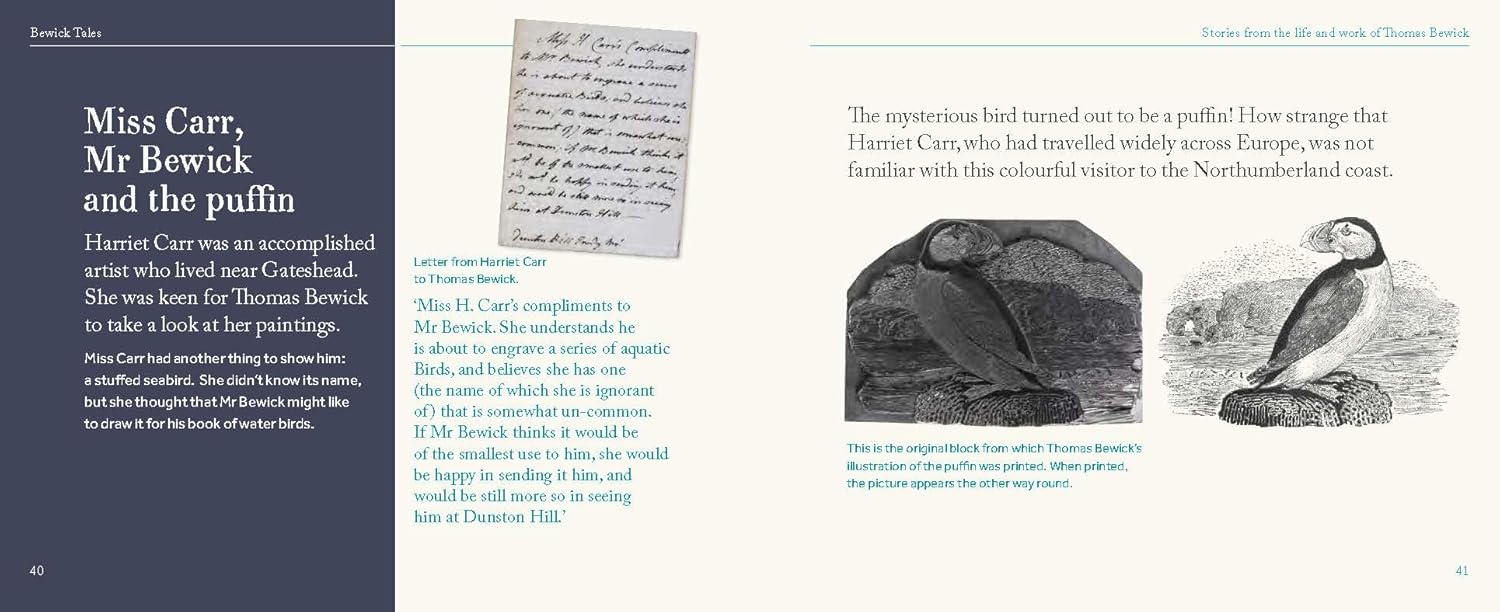 Bewick Tales
Miss Carr,
Mr Bewick
and the puffin
Harriet Carr was an accomplished
artist who lived near Gateshead.
She was keen for Thomas Bewick
to take a look at her paintings.
Miss Carr had another thing to show him:
a stuffed seabird. She didn't know its name,
but she thought that Mr Bewick might like
to draw it for his book of water birds.
40
Miss H Carr's Compliments
to Mr Bewick, she understands
he is about to engrave a series
of aquatic Birds, and believes she
has one (the name of which she is
ignorant of) that is somewhat un-
common. if Mr Bewick thinks it
wd be of the smallest use to him
she wd be happy in sending it him,
and would be still more so in seeing
him at Dunston Hill—
Dunston Hill
Letter from Harriet Carr
to Thomas Bewick.
‘Miss H. Carr’s compliments to
Mr Bewick. She understands he
is about to engrave a series of aquatic
Birds, and believes she has one
(the name of which she is ignorant
of) that is somewhat un-common.
If Mr Bewick thinks it would be
of the smallest use to him, she would
be happy in sending it him, and
would be still more so in seeing
him at Dunston Hill.’
Stories from the life and work of Thomas Bewick
The mysterious bird turned out to be a puffin! How strange that
Harriet Carr, who had travelled widely across Europe, was not
familiar with this colourful visitor to the Northumberland coast.
This is the original block from which Thomas Bewick’s
illustration of the puffin was printed. When printed,
the picture appears the other way round.
41